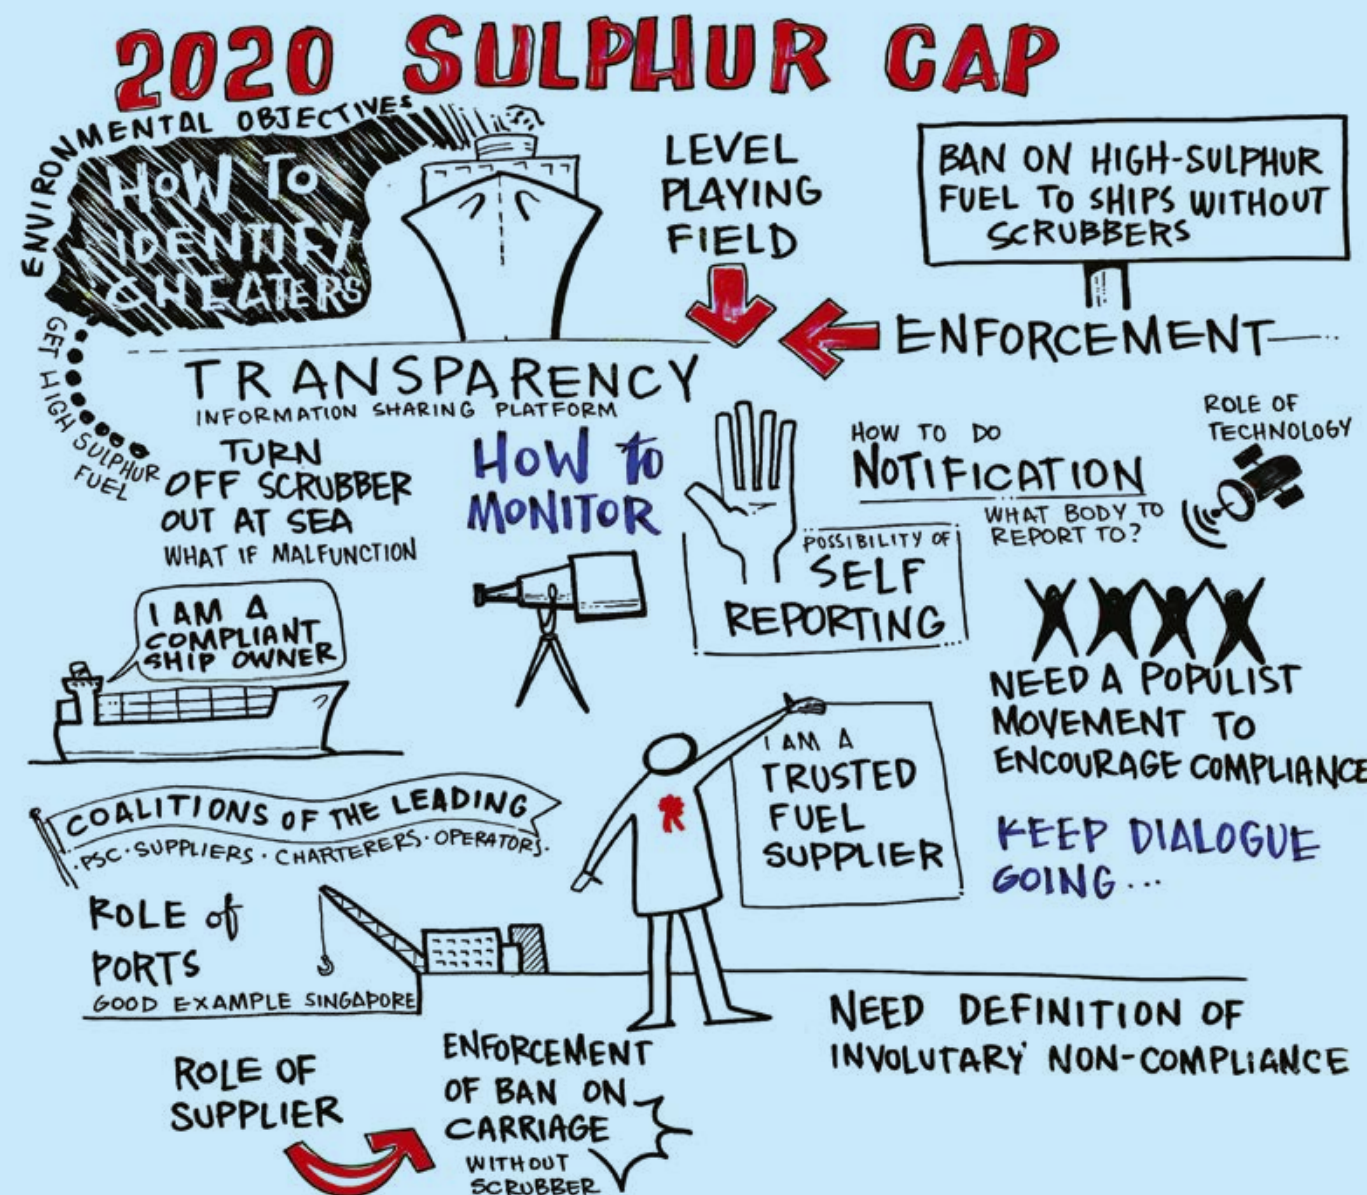 2020 SULPHUR CAP
ENVIRONMENTAL OBJECTIVES
HOW TO
IDENTIFY
CHEATERS
GET HIGH SULPHUR
FUEL
LEVEL
PLAYING
FIELD
BAN ON HIGH-SULPHUR
FUEL TO SHIPS WITHOUT
SCRUBBERS
ENFORCEMENT
TRANSPARENCY
INFORMATION SHARING PLATFORM
TURN
OFF SCRUBBER
OUT AT SEA
WHAT IF MALFUNCTION
HOW to
MONITOR
HOW TO DO
NOTIFICATION
WHAT BODY TO
REPORT TO?
ROLE OF
TECHNOLOGY
POSSIBILITY OF
SELF
REPORTING
I AM A
COMPLIANT
SHIP OWNER
NEED A POPULIST
MOVEMENT TO
ENCOURAGE COMPLIANCE
I AM A
TRUSTED
FUEL
SUPPLIER
KEEP DIALOGUE
GOING...
COALITIONS OF THE LEADING
·PSC·SUPPLIERS·CHARTERERS·OPERATORS·
ROLE of
PORTS
GOOD EXAMPLE SINGAPORE
NEED DEFINITION OF
INVOLUTARY NON-COMPLIANCE
ROLE OF
SUPPLIER
ENFORCEMENT
OF BAN ON
CARRIAGE
WITHOUT
SCRUBBER